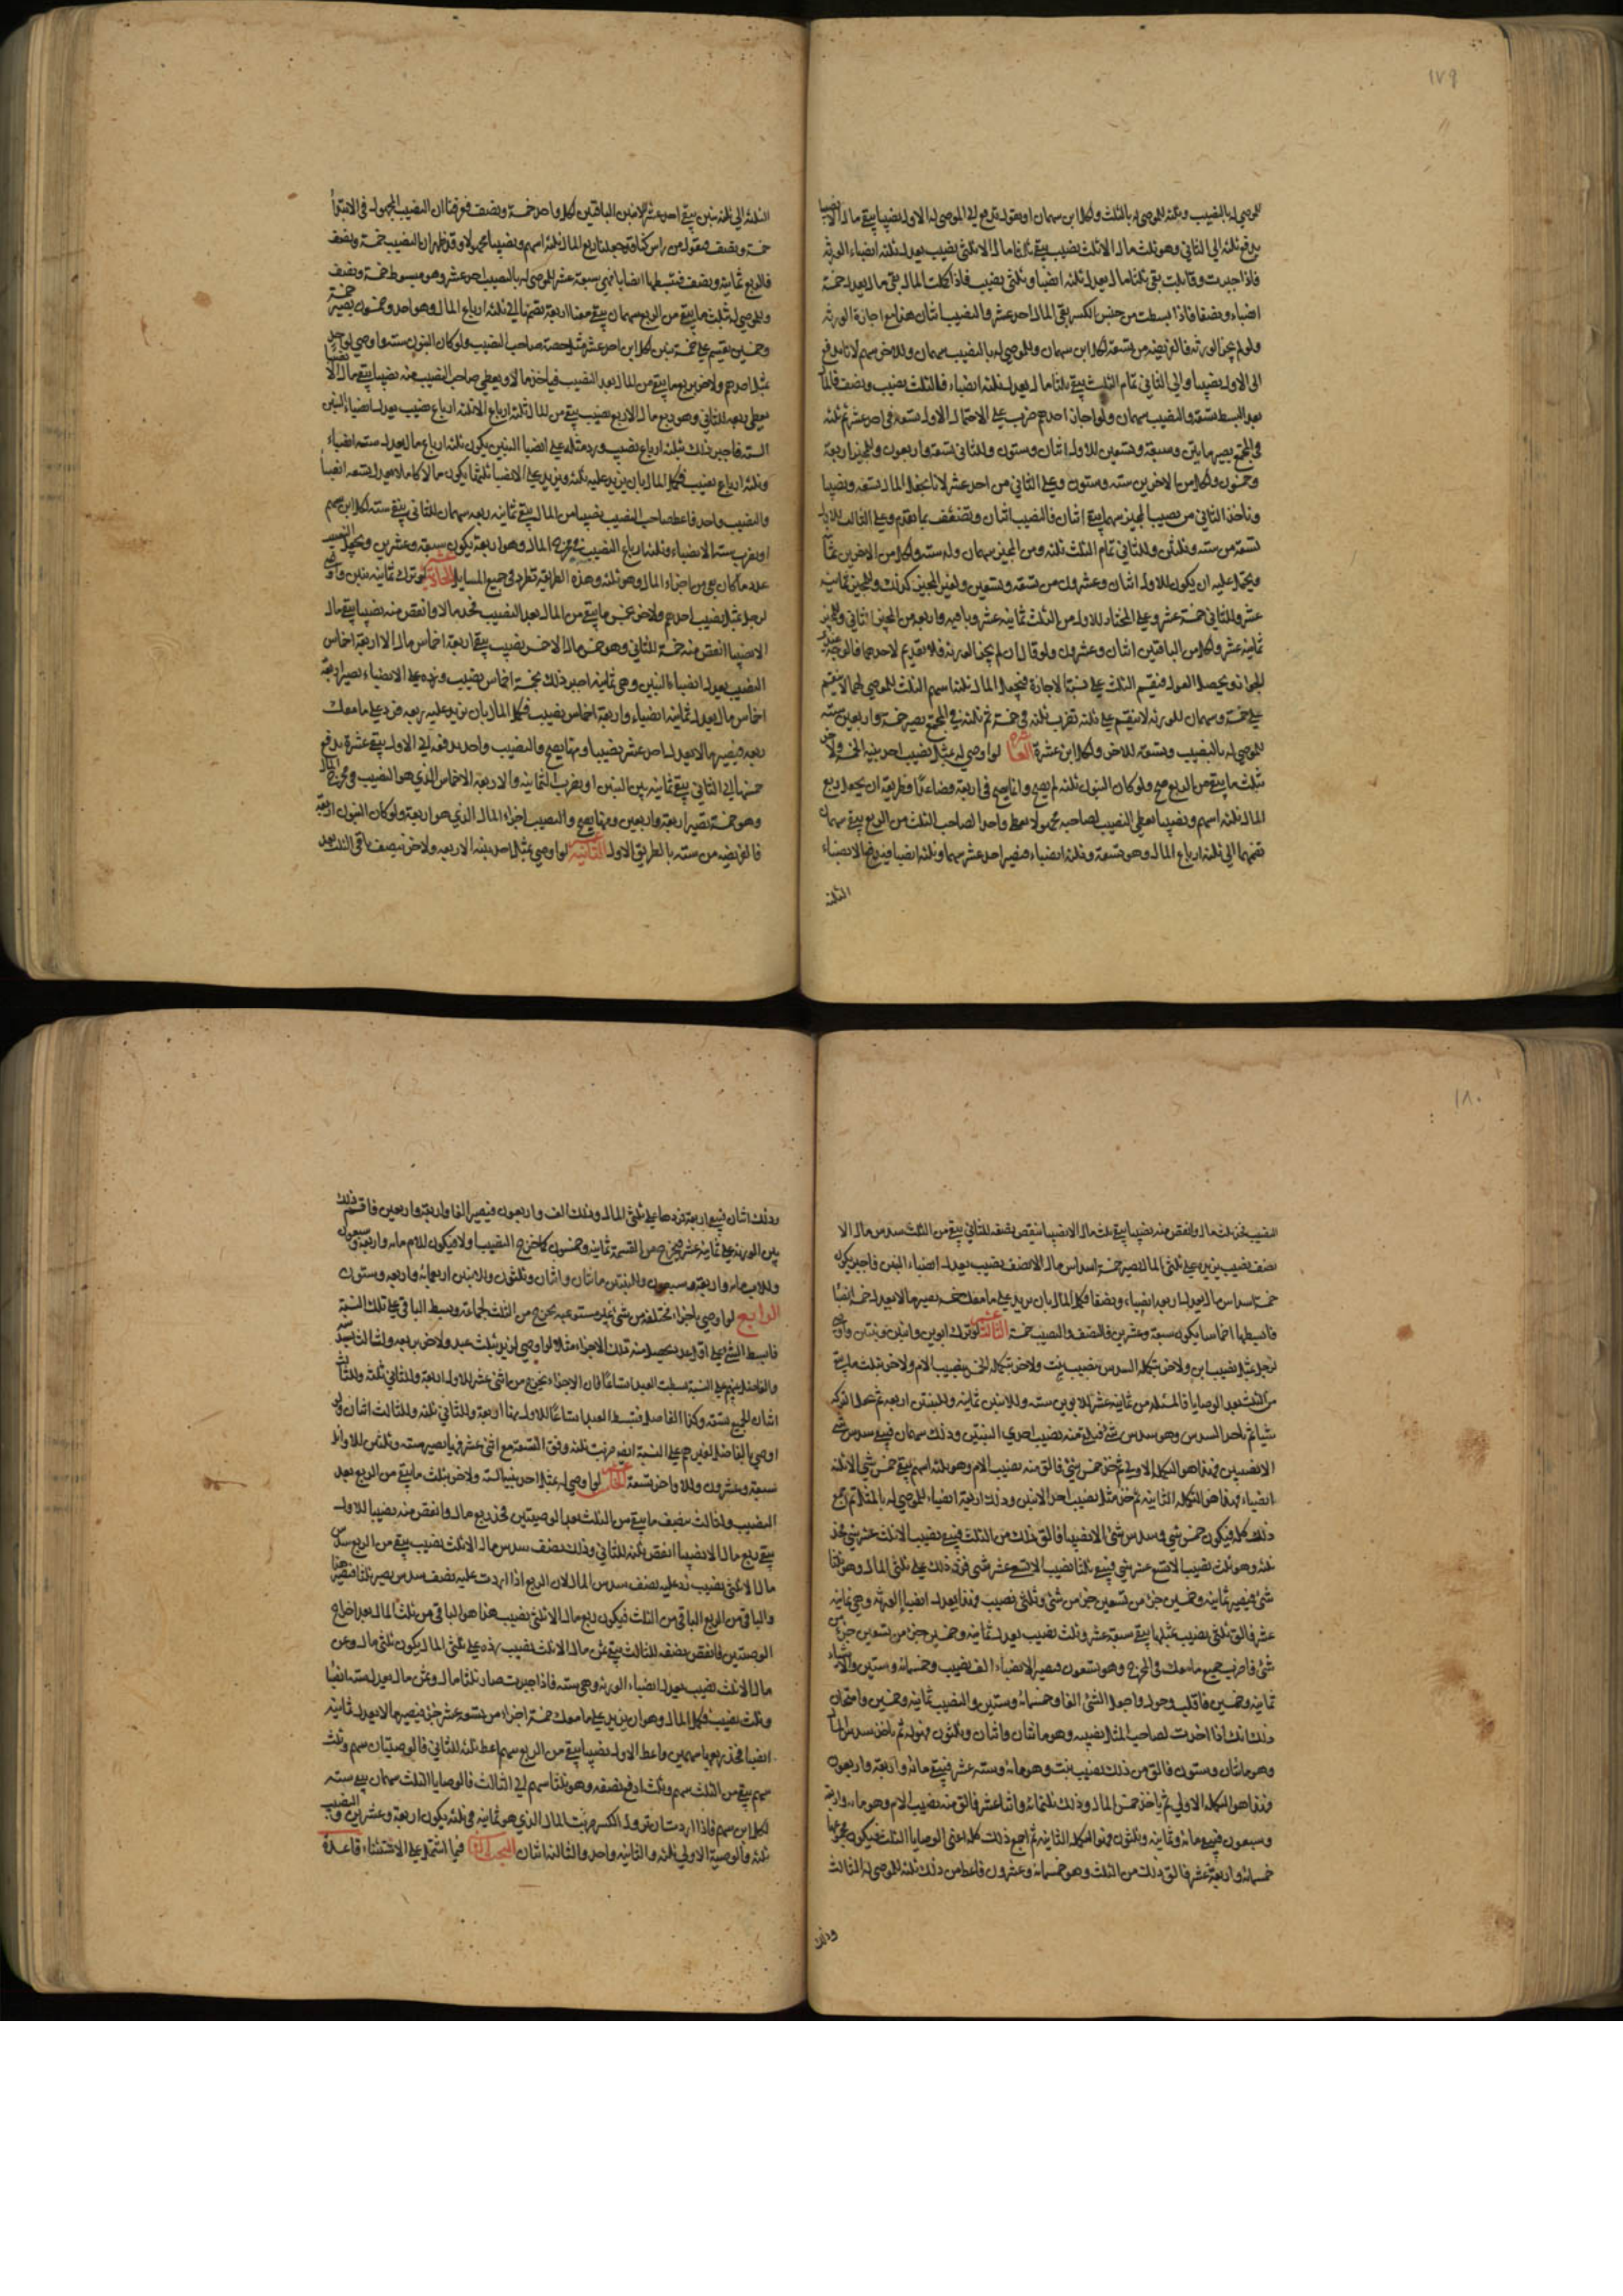 ١٧٩
للموصى له بالنصيب وثلثه للموصى له بالثلث ولكل ابن سهمان او نقول ندفع الى الموصى له الاول نصيبا يبقى مال الا نصيبا
ندفع ثلثه الى الثاني وهو ثلث مال الا ثلث نصيب يبقى ثلثا مال الا ثلثي نصيب يعدل ثلثة انصباء الورثة
فاذا جبرت وقابلت بقى ثلثا مال يعدل ثلثة انصبا وثلثي نصيب فاذا كملت المال بقى مال يعدل خمسة
انصباء ونصفا فاذا بسطت من جنس الكسر بقى المال احد عشر والنصيب اثنان هذا مع اجازة الورثه
ولو لم يجز الورثه فالفريضه من تسعة لكل ابن سهمان وللموصى له بالنصيب سهمان وللاخر سهم لانا ندفع
الى الاول نصيبا والى الثاني تمام الثلث يبقى ثلثا مال يعدل ثلثه انصباء فالثلث نصيب ونصف فالمال
بعد البسط تسعة والنصيب سهمان ولو اجاز احدهم ضرب على الاحتمال الاول تسعة في احد عشر ثم ثلثه
في المجتمع يصير مايتين وسبعة وتسعين للاول اثنان وستون وللثاني تسعة واربعون وللمجيز اربعة
وخمسون ولكل من الاخرين ستة وستون وعلى الثاني من احد عشر لانا نجعل المال تسعه ونصيبا
وناخذ الثاني من نصيب المجيز سهما يبقى اثنان فالنصيب اثنان وتضعف بما تقدم وعلى الثالث للاول
تسعة من ستة وثلثين وللثاني تمام الثلث ثلثه ومن المجيز سهمان وله ستة ولكل من الاخرين ثمانية
ويحتمل عليه ان يكون للاول اثنان وعشرون من تسعة وتسعين ولغير المجيز كذلك وللمجيز ثمانية
عشر وللثاني خمسة عشر وعلى المختار للاول من الثلث ثمانية عشر وباقيه واربعه من المجيز للثاني وللمجيز
ثمانية عشر ولكل من الباقيين اثنان وعشرون ولو قال ان لم يجز الورثه فلا تقديم لاحدهما فالوجه عندي
الجواز ويحصل العول فنقسم الثلث على نسبة الاجازة فنجعل المال ثلثا سهم الثلث للموصى لهما لا ينقسم
على خمسة وسهمان للورثه لا ينقسم على ثلثه نضرب ثلثه في خمسة ثم ثلثه في المجتمع يصير خمسة واربعين ستة
للموصى له بالنصيب وتسعة للاخر ولكل ابن عشرة العاشرة لو اوصى له بمثل نصيب احد بنيه الخمسة ولاخر
بثلث ما يبقى من الربع صح ولو كان البنون ثلثه لم يصح وانما يصح في اربعة فصاعدا وطريقه ان يجعل ربع
المال ثلثه اسهم ونصيبا يعطى النصيب لصاحبه مجهولا ويعطى واحدا لصاحب الثلث من الربع يبقى سهمان
نضمهما الى ثلثه ارباع المال وهو تسعة وثلثه انصباء فيصير احد عشر سهما وثلثه انصبا فيدفع الانصباء
الثلثة
الثلثه الى ثلثه بنين يبقى احد عشر للابنين الباقيين لكل واحد خمسة ونصف فعرفنا ان النصيب المجهول في الابتداء
خمسة ونصف فنقول من راس كنا قد جعلنا ربع المال ثلثه اسهم ونصيبا مجهولا وقد ظهر ان النصيب خمسة ونصف
فالربع ثمانية ونصف فنبسطها انصافا فهي سبعة عشر للموصى له بالنصيب احد عشر وهو مبسوط خمسة ونصف
وللموصى له بثلث ما يبقى من الربع سهمان يبقى معنا اربعة نضمها الى ثلثه ارباع المال وهو احد وخمسون يصير خمسة
وخمسين يقسم على خمسة بنين لكل ابن احد عشر مثل حصة صاحب النصيب ولو كان البنون ستة واوصى لواحد
بمثل احدهم ولاخر بربع ما يبقى من المال بعد النصيب فياخذ مالا ويعطي صاحب النصيب منه نصيبا يبقى مال الا نصيبا
يعطى ربعه للثاني وهو ربع مال الا ربع نصيب يبقى من المال ثلثه ارباع الا ثلثه ارباع نصيب يعدل انصباء البنين
الستة فاجبر ذلك بثلثه ارباع نصيب وزد مثله على انصبا البنين يكون ثلثه ارباع مال يعدل ستة انصباء
وثلثه ارباع نصيب فكمل المال بان يزيد عليه ثلثه ويزيد على الانصبا ثلثها يكون مالا كاملا يعدل تسعة انصبا
والنصيب واحد فاعط صاحب النصيب نصيبا من المال يبقى ثمانية ربعه سهمان للثاني يبقى ستة لكل ابن سهم
او يضرب ستة الانصباء وثلثه ارباع النصيب في مخرج المال وهو اربعة يكون سبعة وعشرين ويجعل النصيب
عدد ما كان بقى من اجزاء المال وهو ثلثه وهذه الطريقة تطرد في جميع المسايل الحادية عشر لو ترك ثمانية بنين واوصى
لرجل بمثل نصيب احدهم ولاخر بخمس ما يبقى من المال بعد النصيب فخذ مالا وانقص منه نصيبا يبقى مال
الا نصيبا انقص منه خمسه للثاني وهو خمس مال الا خمس نصيب يبقى اربعة اخماس مال الا اربعة اخماس
النصيب يعدل انصباء البنين وهي ثمانية اجبر ذلك بخمسة اخماس نصيب وزده على الانصباء يصير اربعة
اخماس مال يعدل ثمانية انصباء واربعة اخماس نصيب فكمل المال بان يزيد عليه ربعه فزد على ما معك
ربعه فيصير مالا يعدل احد عشر نصيبا ومنها يصح والنصيب واحد يدفعه الى الاول يبقى عشرة يدفع
خمسها الى الثاني يبقى ثمانية بين البنين او يضرب الثمانية والاربعة الاخماس الذي هو النصيب في مخرج المال
وهو خمسة يصير اربعة واربعين ومنها يصح والنصيب اجزاء المال الذي هو اربعة ولو كان البنون اربعة
فالفريضه من ستة بالطريق الاول الثانية عشر لو اوصى بمثل احد بنيه الاربعه ولاخر بنصف باقي الثلث بعد
١٨٠
النصيب فخذ ثلث مال وانقص منه نصيبا يبقى ثلث مال الا نصيبا ينقص نصفه للثاني يبقى من الثلث سدس مال الا
نصف نصيب يزيده على ثلثي المال يصير خمسة اسداس مال الا نصف نصيب يعدل انصباء البنين فاجبر يكون
خمسة اسداس مال يعدل اربعة انصباء ونصفا فكمل المال بان يزيد على ما معك خمسه يصير مالا يعدل خمسة انصبا
فابسطها اخماسا يكون سبعة وعشرين فالنصف والنصيب خمسة الثالثة عشر لو ترك ابوين وابنين وبنتين واوصى
لرجل بمثل نصيب ابن ولاخر بتكملة السدس بنصيب بنت ولاخر بتكملة الخمس بنصيب الام ولاخر بثلث ما يبقى
من الثلث بعد الوصايا فالمسئلة من ثمانية عشر للابوين ستة وللابنين ثمانية وللبنتين اربعة ثم تجعل التركة
شيا ثم ناخذ السدس وهو سدس شيء فيلقى منه نصيب احدى البنتين وذلك سهمان فيبقى سدس شيء
الا نصيبين فهذا هو التكملة الاولى ثم خذ خمس شيء فالق منه نصيب الام وهو ثلثه اسهم يبقى خمس شيء الا ثلثه
انصباء فهذا هو التكملة الثانية ثم خذ مثل نصيب احد الابنين وذلك اربعة انصباء للموصى له بالمثل ثم اجمع
ذلك كله فيكون خمس شيء وسدس شيء الا نصيبا فالق ذلك من الثلث فيبقى نصيب الا ثلث عشر شيء فخذ
ثلثه وهو ثلث نصيب الا تسع عشر شيء فيبقى ثلثا نصيب الا تسع عشر شيء فزد ذلك على ثلثي المال وهو ثلثا
شيء فيصير ثمانية وخمسين جزءا من تسعين جزءا من شيء وثلثي نصيب فهذا يعدل انصبا الورثه وهي ثمانية
عشر فالق ثلثي نصيب بمثلها يبقى سبعة عشر وثلث نصيب يعدل ثمانية وخمسين جزءا من تسعين جزءا من
شيء فاضرب جميع ما معك في المخرج وهو تسعون فيصير الانصباء الف نصيب وخمسمائة وستين والاشياء
ثمانية وخمسين فاقلب وحول واجعل الشيء الفا وخمسمائة وستين والنصيب ثمانية وخمسين وامتحان
ذلك انك اذا اخذت لصاحب المثل نصيبه وهو مائتان واثنان وثلثون فهو له ثم ياخذ سدس المال
وهو مائتان وستون فالق من ذلك نصيب بنت وهو مائة وستة عشر فيبقى مائة واربعة واربعون
فهذا هو التكملة الاولى ثم ياخذ خمس المال وذلك ثلثمائة واثنا عشر فالق منه نصيب الام وهو مائة واربعة
وسبعون فيبقى مائة وثمانية وثلثون فهو التكملة الثانية ثم اجمع ذلك كله اعني الوصايا الثلث فيكون مجموعها
خمسمائة واربعة عشر فالق ذلك من الثلث وهو خمسمائة وعشرون فاعط من ذلك ثلثه للموصى له الثالث
وذلك
وذلك اثنان فيبقى اربعة تزدها على ثلثي المال وذلك الف واربعون فيصير الفا واربعة واربعين فاقسم ذلك
بين الورثة على ثمانية عشر فيخرج من القسمة ثمانية وخمسون كما خرج النصيب اولا فيكون للام مائة واربعة وسبعون
وللاب مائة واربعة وسبعون وللبنتين مائتان واثنان وثلثون وللابنين اربعمائة واربعة وستون
الرابع عشر لو اوصى باجزاء مختلفة من شيء غير مستوعبه يخرج من الثلث لجماعة وبسط الباقي على تلك النسبة
فابسط الشيء على اقل عدد يحصل منه تلك الاجزاء مثلا لو اوصى لزيد بثلث عبد ولاخر بربعه ولثالث بسدسه
والفاضل بينهم على النسبة بسطت العبد اتساعا فان الاجزاء يخرج من اثنى عشر للاول اربعة وللثاني ثلثة وللثالث
اثنان الجميع تسعة وكذا الفاضل فتبسط العبد اتساعا للاول منها اربعة وللثاني ثلثه وللثالث اثنان ولو
اوصى بالفاضل لغيرهم على النسبة ايضا ضربت ثلثه وفق التسعة مع اثنى عشر فيها يصير ستة وثلثين للاوايل
سبعة وعشرون وللاواخر تسعة الخامس عشر لو اوصى له بمثل احد بنيه الستة ولاخر بثلث ما يبقى من الربع بعد
النصيب ولثالث بنصف ما يبقى من الثلث بعد الوصيتين فخذ ربع مال وانقص منه نصيبا للاول
يبقى ربع مال الا نصيبا انقص ثلثه للثاني وذلك نصف سدس مال الا ثلث نصيب يبقى من الربع سدس
مال الا ثلثي نصيب زد عليه نصف سدس المال لان الربع اذا زدت عليه نصف سدس يصير ثلثا فيصير هذا
والباقي من الربع الباقي من الثلث فيكون ربع مال الا ثلثي نصيب هذا هو الباقي من ثلث المال بعد اخراج
الوصيتين فانقص نصفه للثالث يبقى ثمن مال الا ثلث نصيب زده على ثلثي المال يكون ثلثي مال وثمن
مال الا ثلث نصيب يعدل انصباء الورثه وهي ستة فاذا جبرت صار ثلثا مال وثمن مال يعدل ستة انصبا
وثلث نصيب فكمل المال وهو ان يزيد على ما معك خمسة اجزاء من تسعة عشر جزءا فيصير مالا يعدل ثمانية
انصبا فخذ ربعها سهمين واعط الاول نصيبا يبقى من الربع سهم اعط ثلثه للثاني فالوصيتان سهم وثلث
سهم يبقى من الثلث سهم وثلث ادفع نصفه وهو ثلثا سهم الى الثالث فالوصايا الثلث سهمان يبقى ستة
لكل ابن سهم فاذا اردت ان يزول الكسر ضربت المال الذي هو ثمانية في ثلثه يكون اربعة وعشرين والنصيب
ثلثه والوصية الاولى ثلثه والثانية واحد والثالثة اثنان البحث الثالث فيما اشتمل على الاستثناء قاعدة